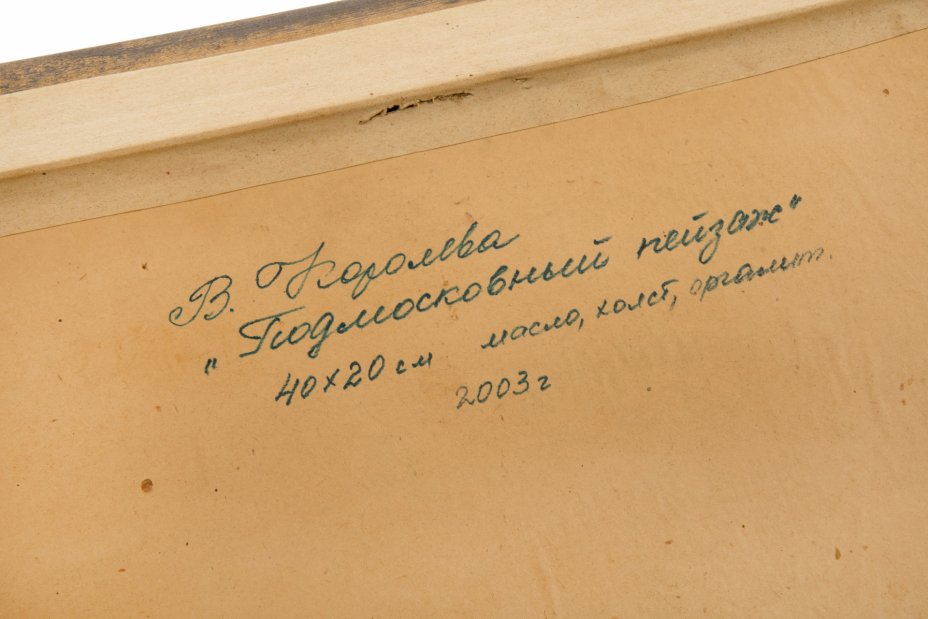 В. Королёва
"Подмосковный пейзаж"
40х20 см масло, холст, оргалит.
2003 г